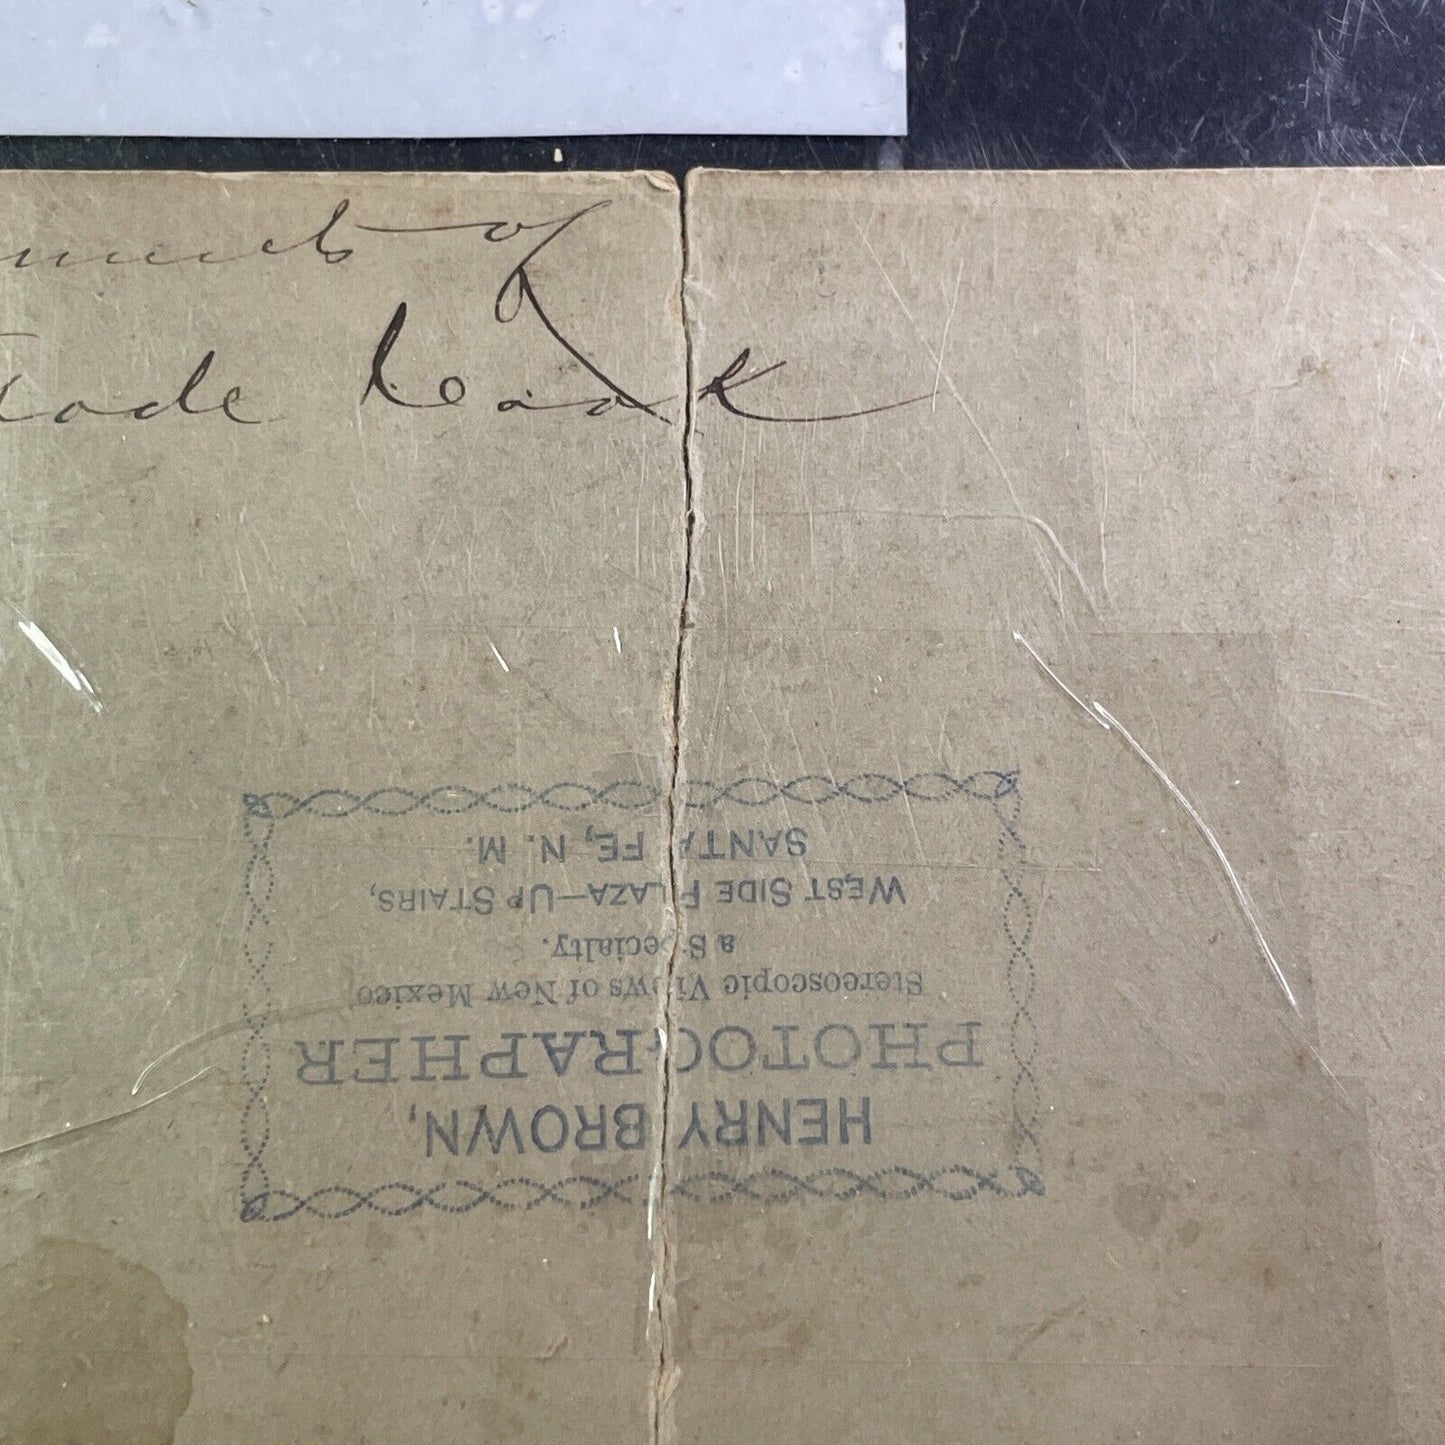 of
HENRY BROWN,
PHOTOGRAPHER
Stereoscopic Views of New Mexico
a Specialty.
WEST SIDE PLAZA—UP STAIRS,
SANTA FE, N. M.